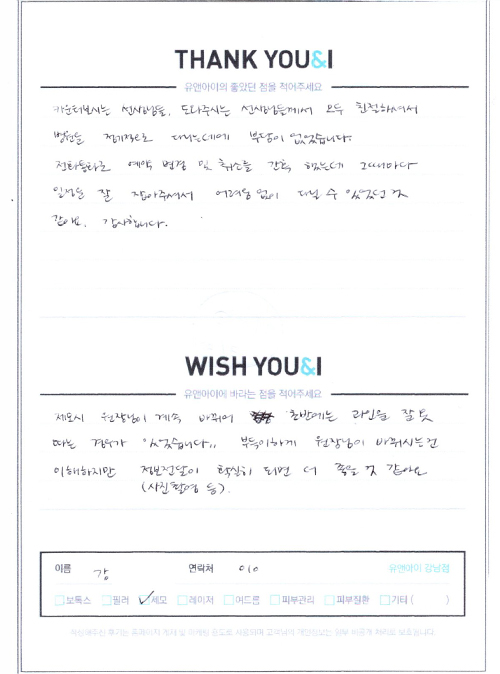 THANK YOU&I
유앤아이의 좋았던 점을 적어주세요
카운터보시는 선생님들, 도와주시는 선생님들께서 모두 친절하셔서
병원을 정기적으로 다니는데에 부담이 없었습니다.
전화통화로 예약 변경 및 취소를 간혹 했는데 그때마다
일정을 잘 잡아주셔서 어려움 없이 다닐 수 있었던 것
같아요. 감사합니다.
WISH YOU&I
유앤아이에 바라는 점을 적어주세요
제모시 원장님이 계속 바뀌어 초반에는 라인을 잘 못
따는 경우가 있었습니다.. 부득이하게 원장님이 바뀌시는건
이해하지만 정보전달이 확실히 되면 더 좋을 것 같아요
(사진촬영 등).
이름 강 연락처 010 유앤아이 강남점
보톡스 필러 제모 레이저 여드름 피부관리 피부질환 기타 ( )